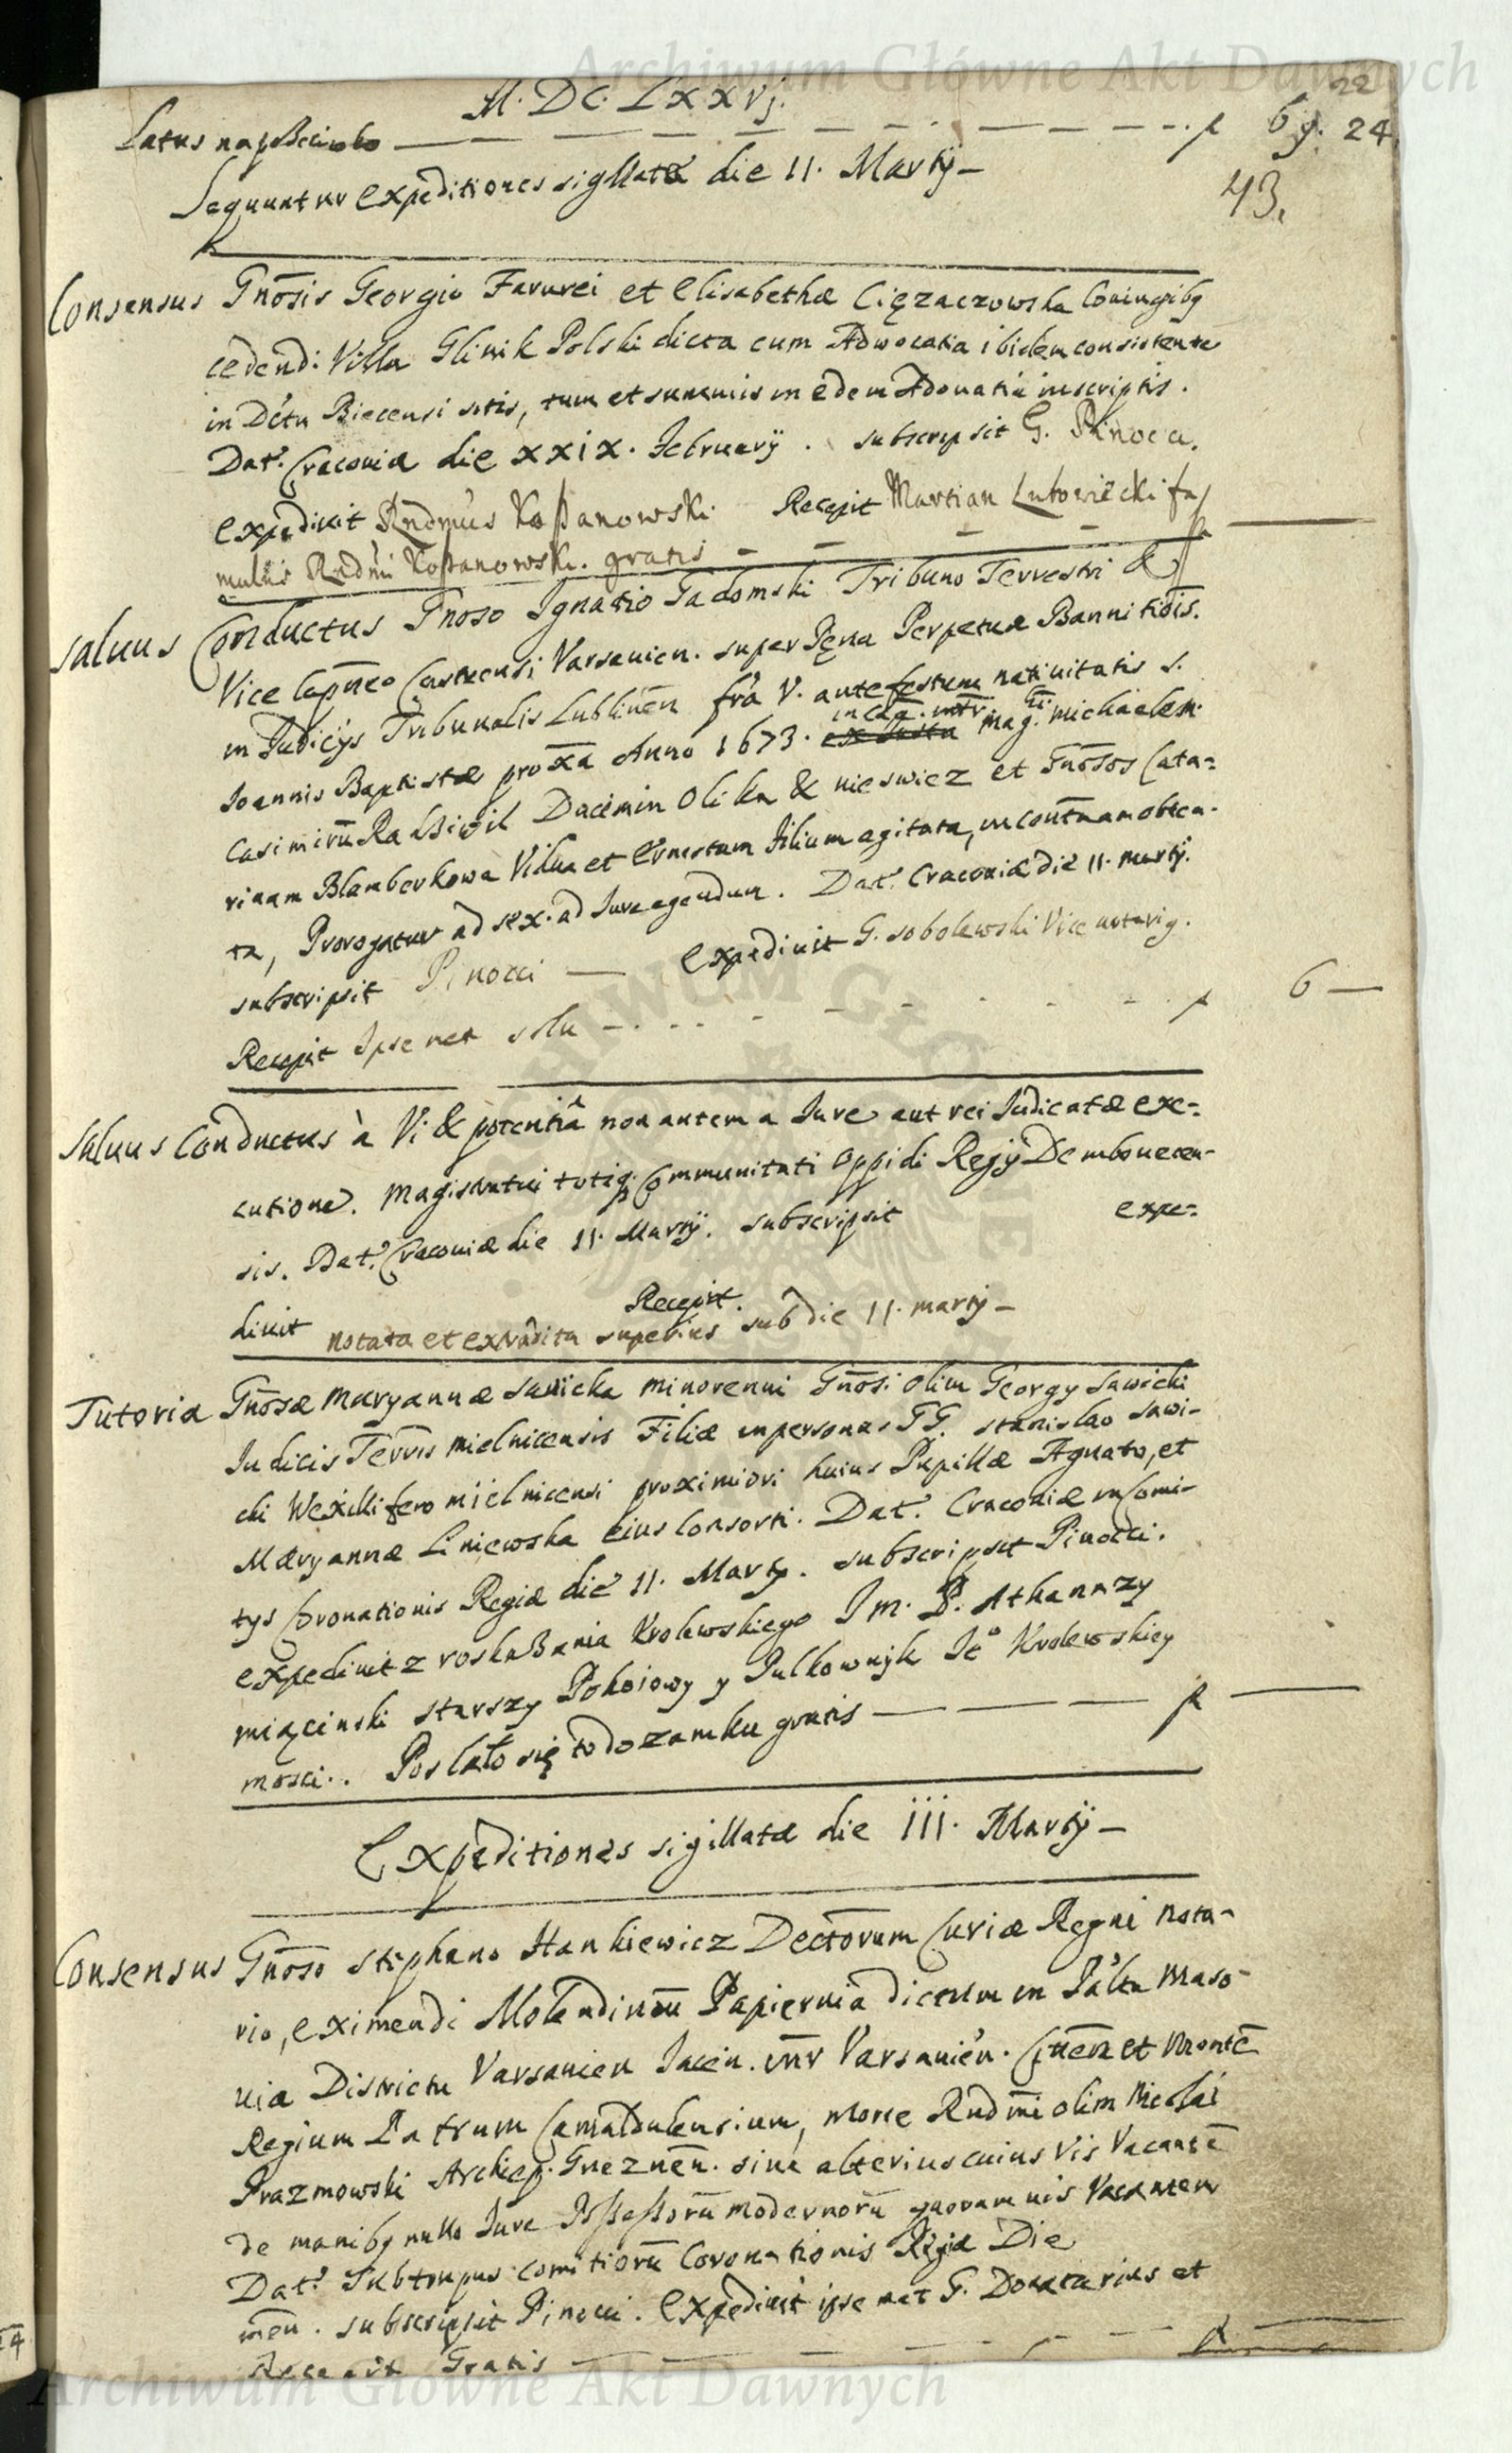 Archiwum Główne Akt Dawnych
22
M. DC. LXXVj.
Latus naprzeciwko — f 69. 24
Sequuntur expeditiones sigillatæ die 11. Martÿ –
43.
Consensus Gnõsis Georgio et Elisabethæ Coniugibq
cedendi Villa Glinik Polski dicta cum Adwocatia ibidem consistente
in Dctu Biecensi sitis, tum et summis in edem Advocatia inscriptis.
Dat. Cracoviæ die XXIX. Februarÿ. subscripsit G. Pinocci.
expedivit Rndmus Kopanowski. Recepit Martian Lutowiecki fa/
mulus Rndmi Kopanowski. gratis – – –
Saluus Conductus Gnoso Ignatio Gadomski Tribuno Terrestri &
Vice Capneo Castrensi Varsavien. super Pęna Perpetuæ Bannitiois.
in Judicÿs Tribunalis Lublinen fra V. ante festum nativitatis S.
Joannis Baptistæ proxa Anno 1673. inter mag. Michaelem
Casimirũ Radziwil Ducem in Olika & nieswiez et Gnõsos Cata=
rinam Blamberkowa Vidua et Ernestum Filium agitata, in contũam obten-
ta, Prorogatur ad sex. ad Jure agendum. Dat. Cracoviæ die 11. martÿ.
subscripsit Pinocci — Expedivit G. Sobolewski Vice notariq.
Recepit Ipse met solu – . . – – – f 6 —
Saluus Conductus à Vi & potentiâ non autem a Jure aut rei Judicatæ exe=
cutione. Magistratui totiq Communitati Oppidi Regÿ Dembouecen-
sis. Dat. Cracoviæ die 11. Martÿ. subscripsit expe=
divit Recepit.
notata et extradita superius sub die 11. martÿ –
Tutoria Gnõsæ Maryannæ Sawicka minorenni Gnõsi olim Georgy Sawicki
Judicis Terris mielnicensis Filiæ in personas GG. Stanislao Sawi-
cki Wexillifero mielnicensi proximiori huius Pupillæ Agnato, et
Maryannæ Liniewska eius Consorti. Dat. Cracoviæ in Comi-
tys Coronationis Regiæ die 11. Marty. subscripsit Pinocci.
expedivit z roskazania Krolewskiego Im. P. Athanazy
miączinski starszy Pokoiowy y Pulkownyk Ie° Krolewskiey
mosci. Poslało się to do zamku gratis — — — f —
Expeditiones sigillatæ die iii. Martÿ –
Consensus Gnõso Stephano Hankiewicz Dectorum Curiæ Regni nota-
rio, eximendi Molendinũ Papiernia dictum in Paltu Maso-
viæ Districtu Varsavien Jacen. inr Varsavien. Cttem et Montẽ
Regium Patrum Camaldulensium, Morte Rndmi olim Nicolai
Prazmowski Archiep. Gneznen. sive alterius cuius vis Vacantẽ
de manibq nullo Jure Possessorũ modernorũ quorum vis Vacantem
Dat. Sub tempus comitiorũ Coronationis Regiæ Die
men. subscripsit Pinocci. Expedivit ipse met G. Donatarius et
Recepit Gratis — — — f
Archiwum Główne Akt Dawnych